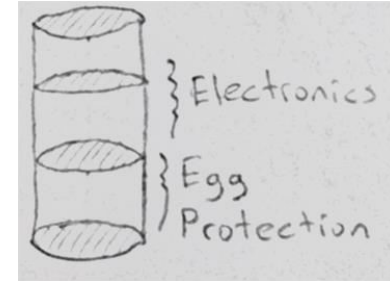 Electronics
Egg
Protection